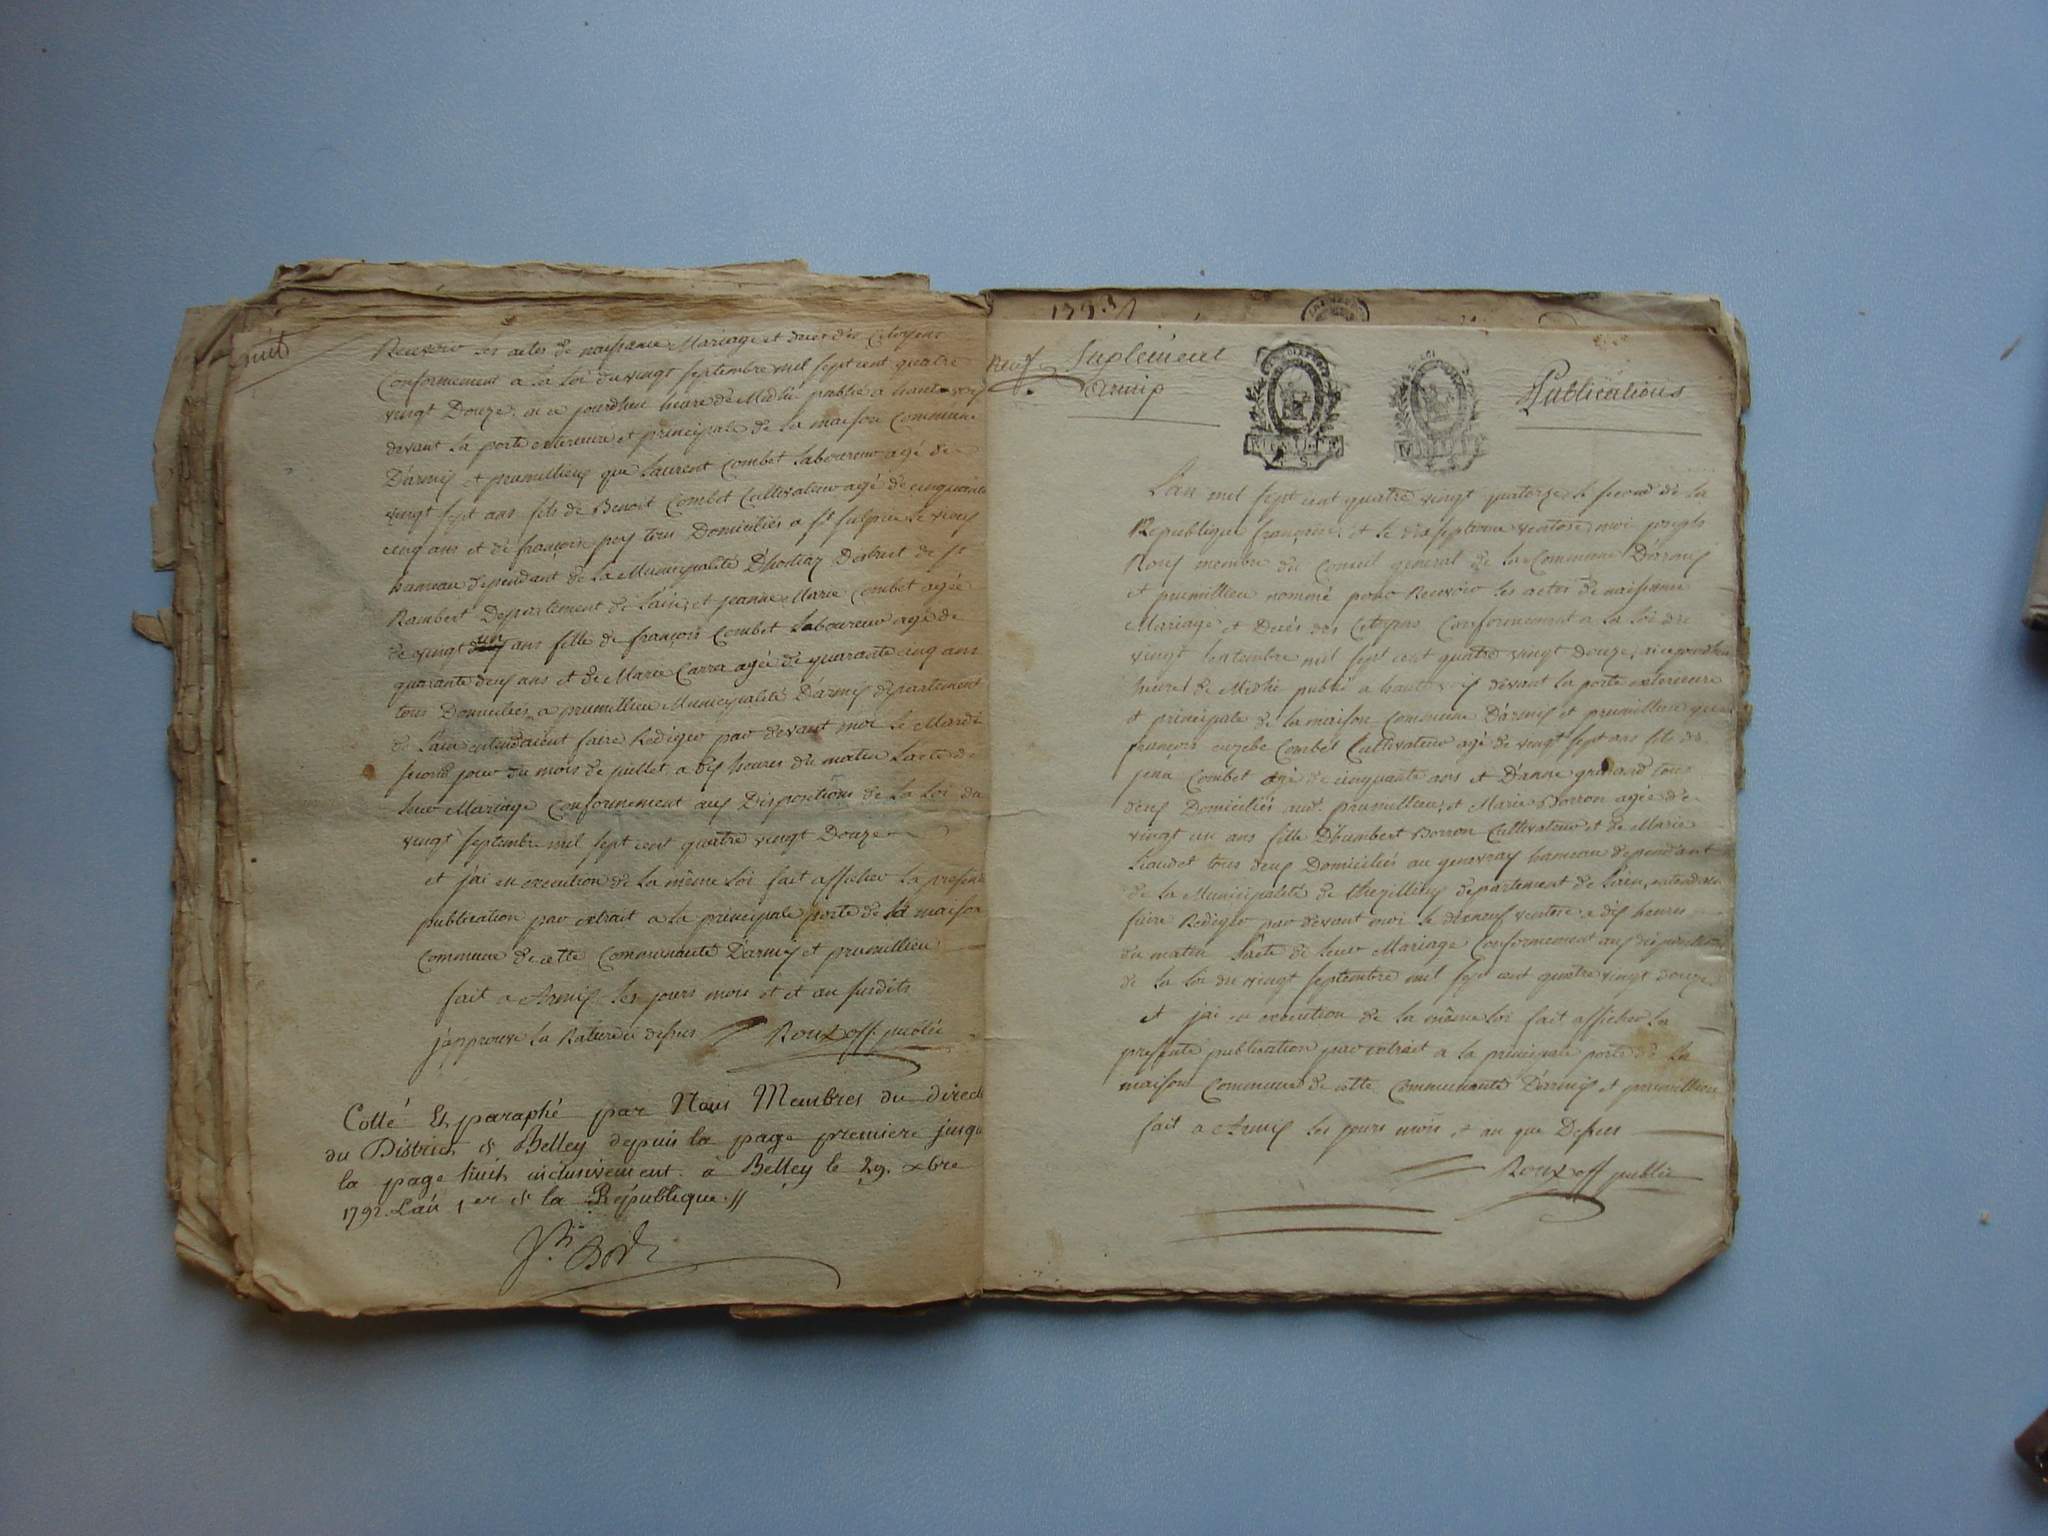 huit
Recevoir les actes de naissance Mariage et deces des Citoyens
Conformement a la Loi du vingt septembre mil sept cent quatre
vingt Douze, ai ce jourdhui heure de Midhi publié a haute voix
devant la porte exterieure et principale de la maison Commune
D'armis et prumillieu que Laurent Combet Laboureur agé de
vingt sept ans fils de Benoit Combet Cultivateur agé de cinquante
cinq ans et de françoise pey tous Domiciliés a St sulpice le vieux
hameau dependant de la Municipalité D'hostiaz District de St
Rambert Departement de Lain, et jeanne Marie Combet agée
de vingt un ans fille de françois Combet Laboureur agé de
quarante deux ans et de Marie Carra agée de quarante cinq ans
tous Domiciliés a prumillieu Municipalité D'armis departement
de Lain entendaient faire Rediger par devant moi le Mardi
second jour du mois de juillet a dix heures du matin Lacte de
leur Mariage Conformement aux Dispositions de la Loi du
vingt septembre mil sept cent quatre vingt Douze
et j'ai en execution de la même Loi fait afficher la presente
publication par extrait a la principale porte de la maison
Commune de cette Communauté D'armis et prumillieu
fait a Armis les jours mois et et an susdits
j'approuve la Rature ci dessus Roux off. public
Cotté Et paraphé par Nous Membres du direct
du District de Belley depuis la page premiere jusqu
la page huit inclusivement. à Belley le 29. xbre
1792. L'an 1er de la République.
1793
Neuf
Suplément
armip
Publications
L'an mil sept cent quatre vingt quatorze le second de la
Republique françoise, et le dix septieme ventose, moi joseph
Roux membre du Conseil general de la Commune D'armis
et prumillieu nommé pour Recevoir les actes de naissance
Mariage et Decés des Citoyens Conformement a la Loi du
vingt septembre mil sept cent quatre vingt douze, ai ce jourdhui
heure de Midhi publié a haute voix devant la porte exterieure
et principale de la maison Commune D'armis et prumillieu que
françois euzebe Combet Cultivateur agé de vingt sept ans fils de
jean Combet agé de cinquante ans et D'anne grinard tous
deux Domiciliés aud. prumillieu, et Marie Borron agée de
vingt un ans fille D'humbert Borron Cultivateur et de Marie
Liaudet tous deux Domiciliés au genevray hameau dependant
de la Municipalité de thezillieux departement de Lain, entendaient
faire Rediger par devant moi le dixneuf ventose a dix heures
du matin Lacte de leur Mariage Conformement aux dispositions
de la Loi du vingt septembre mil sept cent quatre vingt douze
et j'ai en execution de la même Loi fait afficher la
presente publication par extrait a la principale porte de la
maison Commune de cette Communauté D'armis et prumillieu
fait a Armis les jours mois et an que Dessus
Roux off public